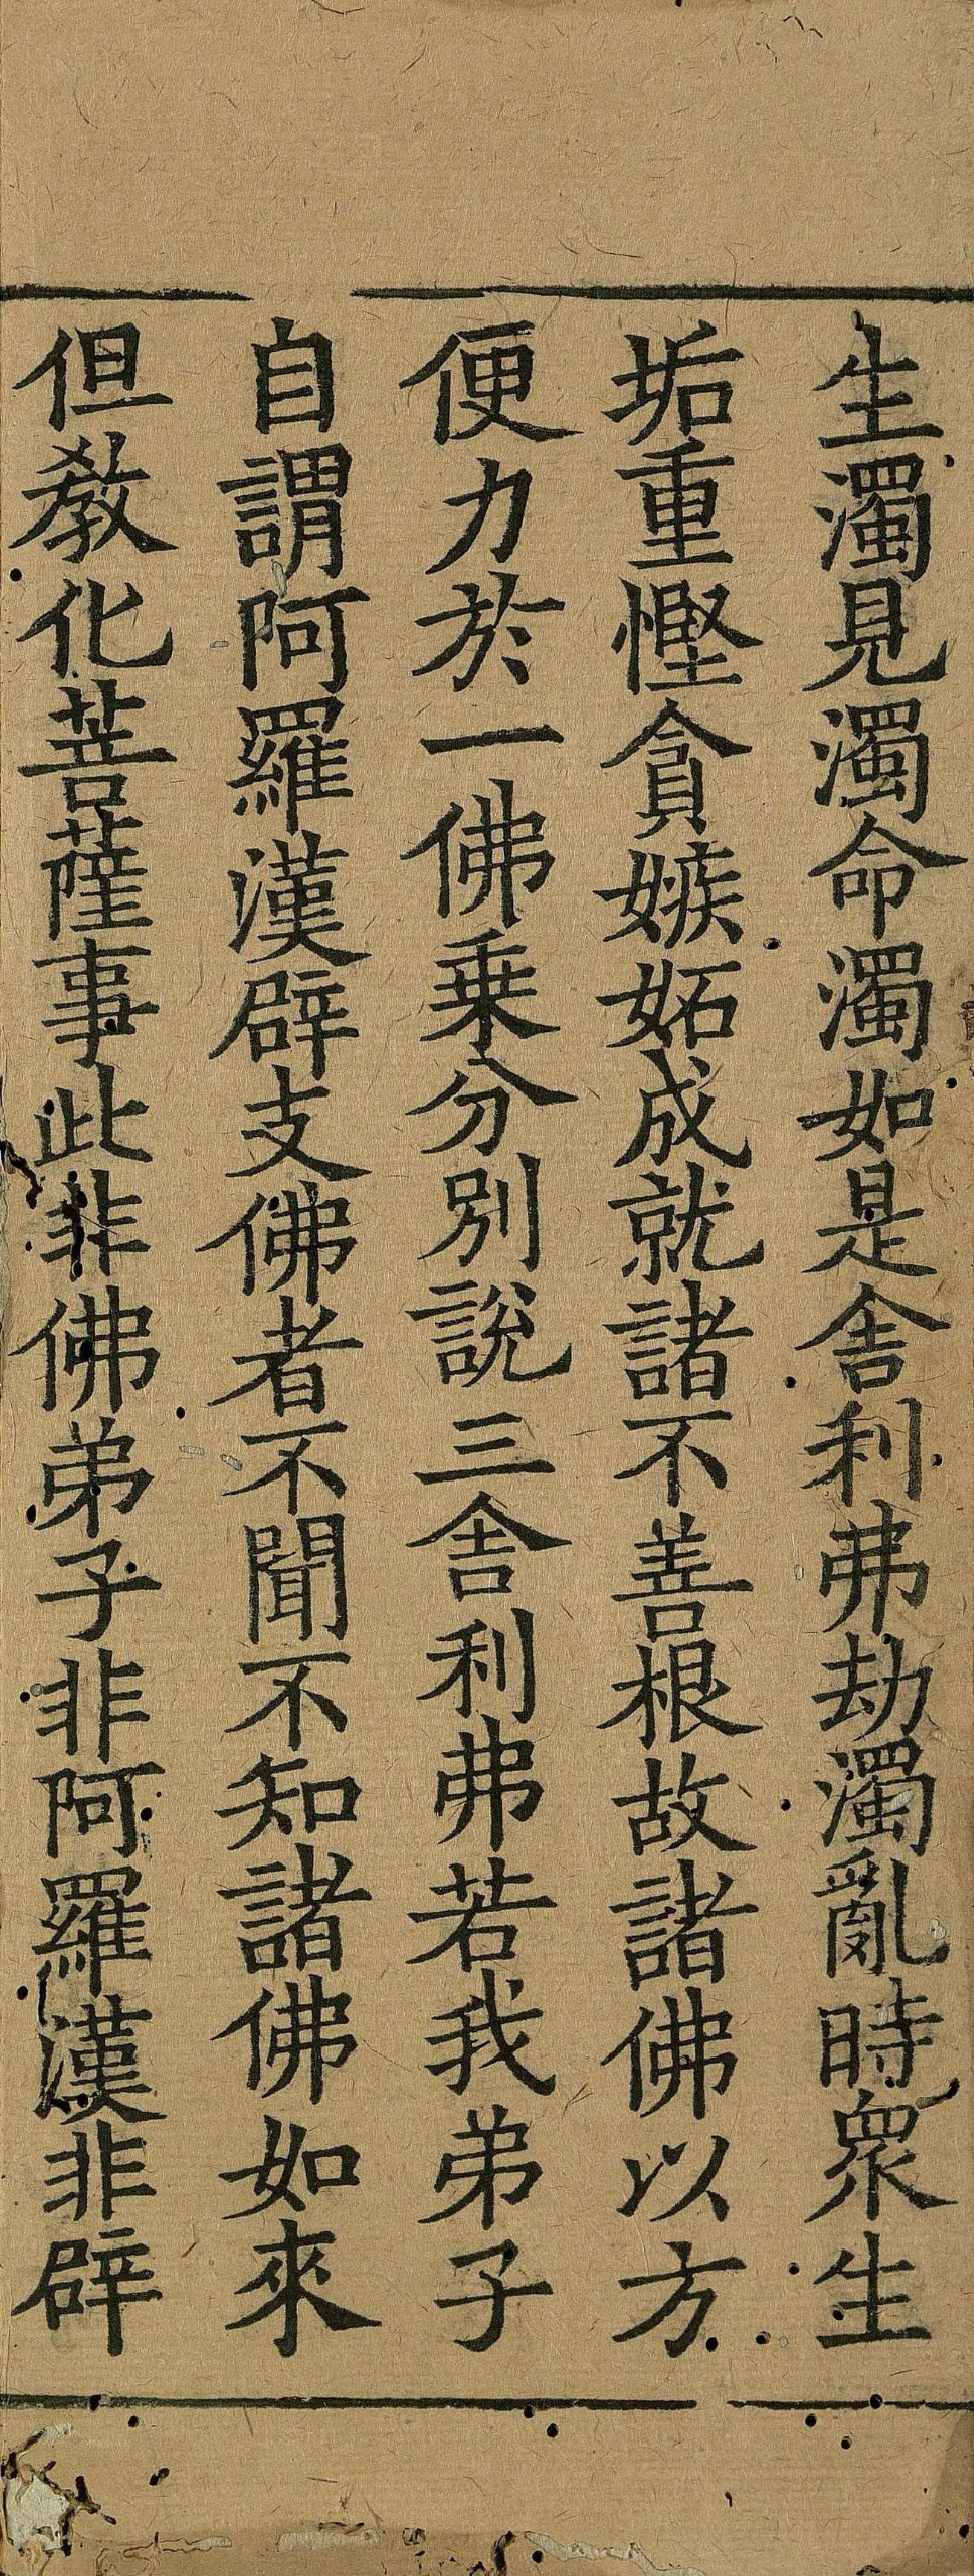 生濁見濁命濁如是舎利弗劫濁亂時衆生
垢重慳貪嫉妬成就諸不善根故諸佛以方
便力於一佛乗分別說三舎利弗若我弟子
自謂阿羅漢辟支佛者不聞不知諸佛如來
但敎化菩薩事此非佛弟子非阿羅漢非辟